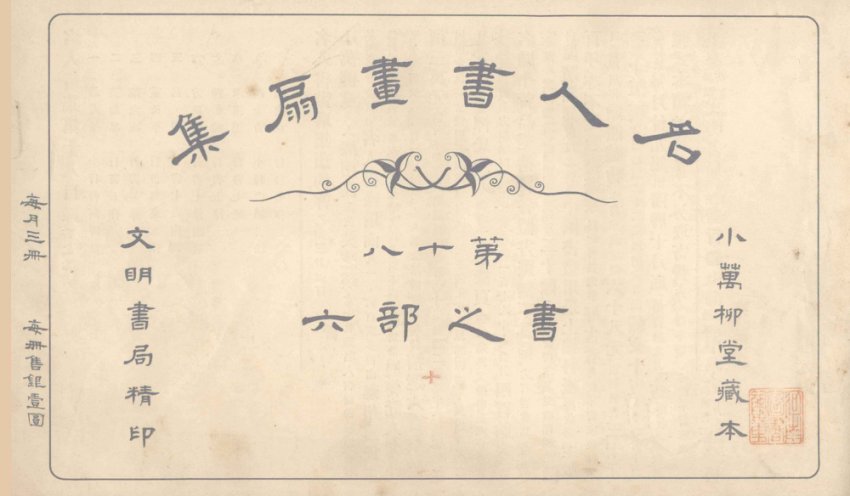 名人書畫扇集
第十八
書之部六
小萬柳堂藏本
文明書局精印
每月三冊
每冊售銀壹圓
十